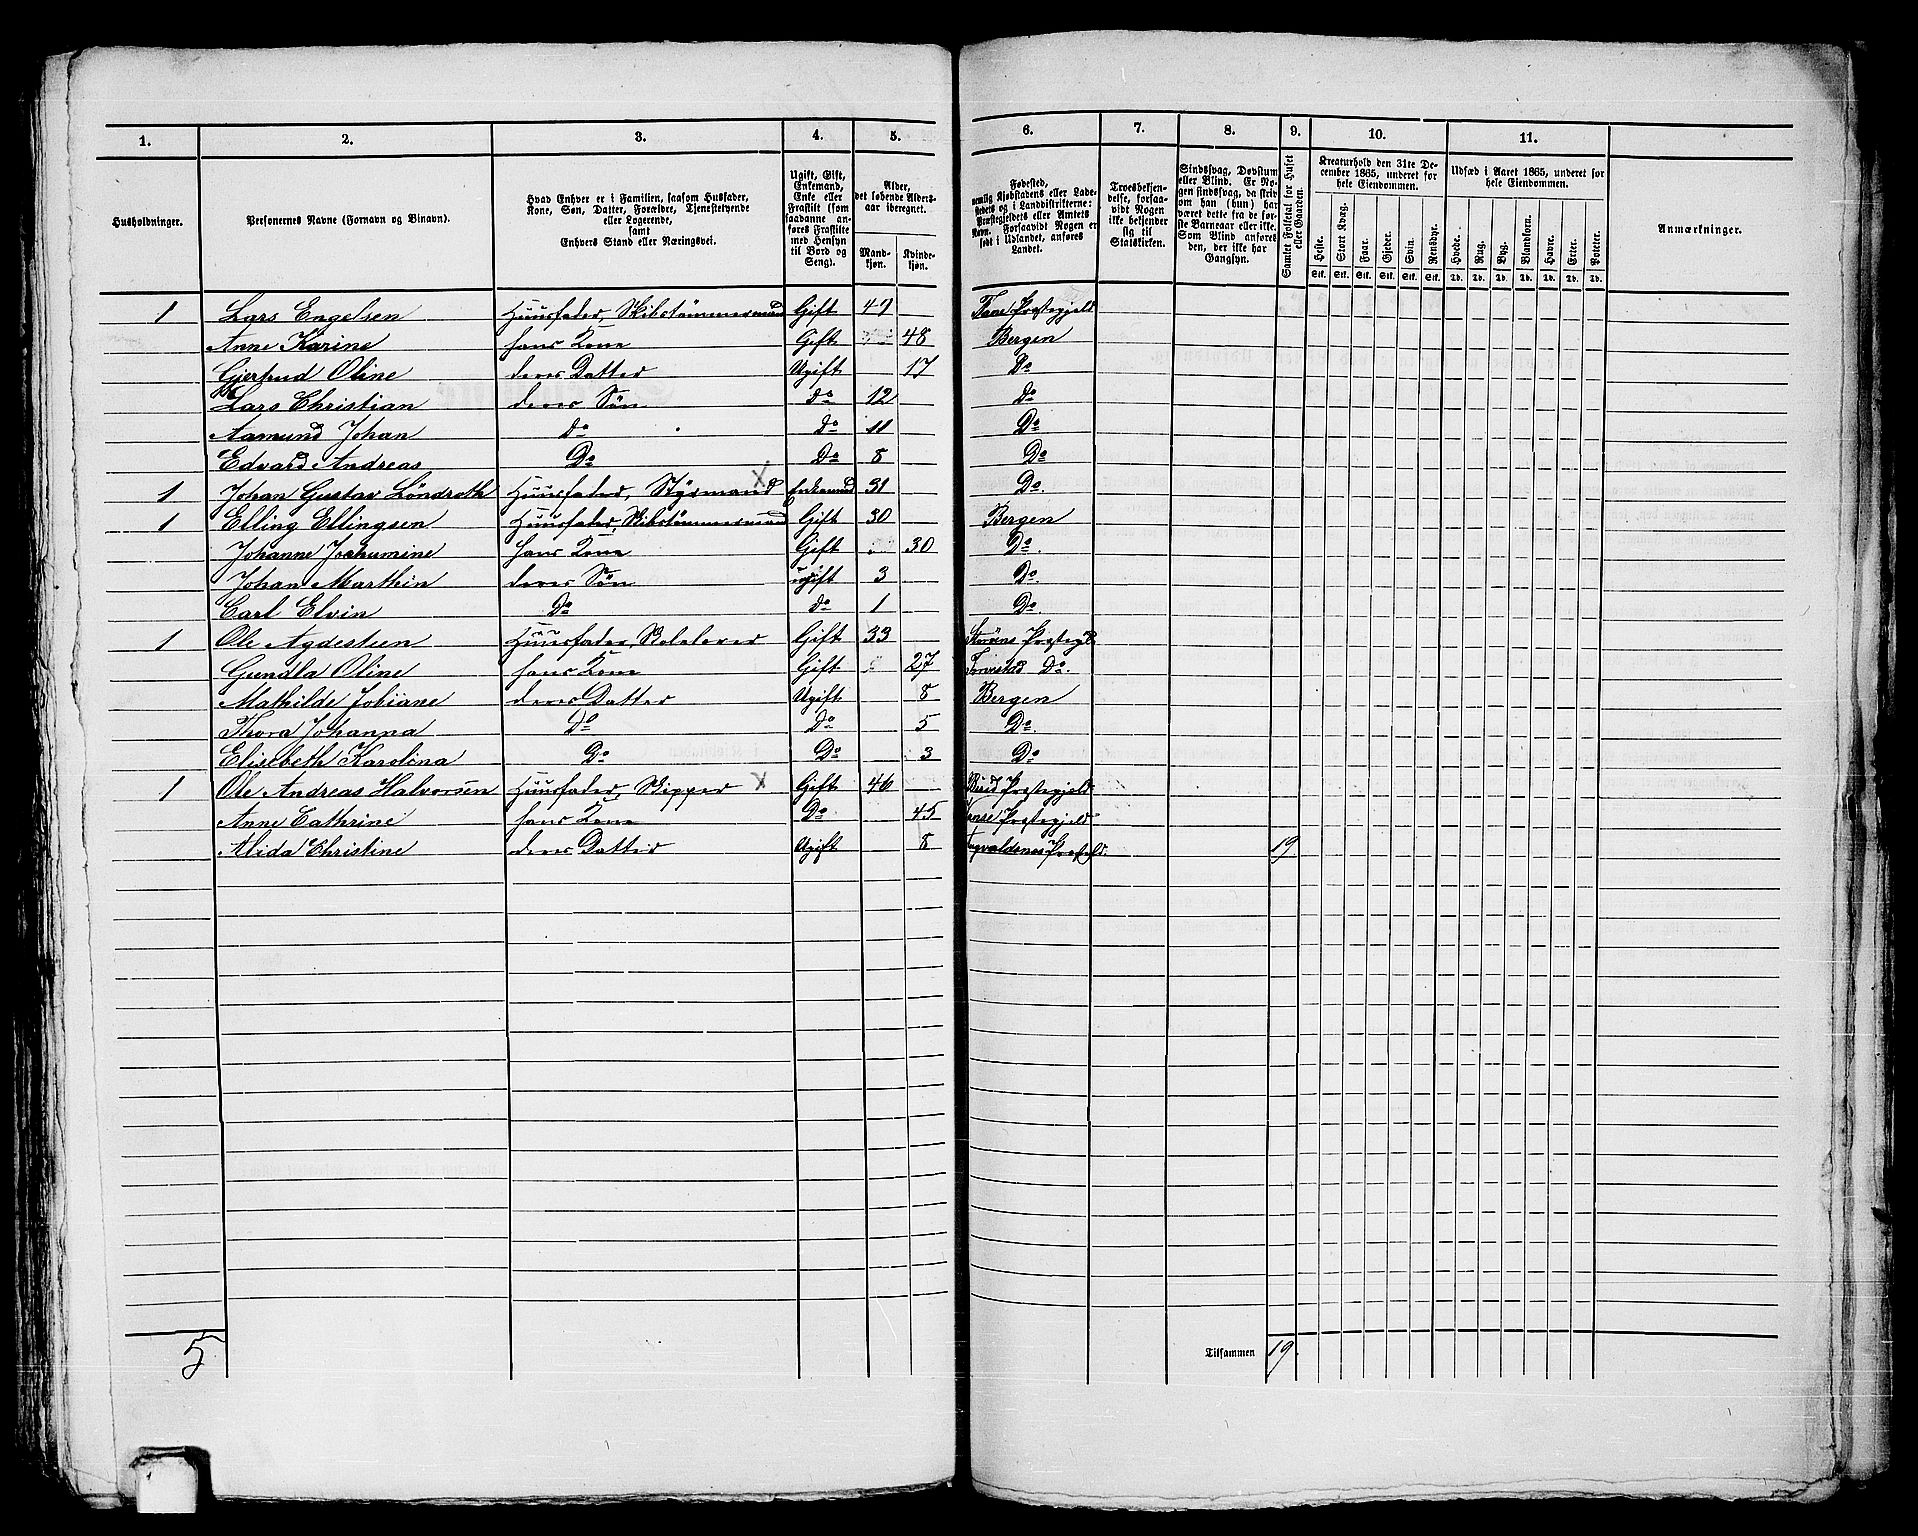 1. 2. 3. 4. 5. 6. 7. 8. 9. 10. 11.
Husholdninger.
Personernes Navne (Fornavn og Binavn).
Hvad Enhver er i Familien, saasom Husfader,
Kone, Søn, Datter, Forældre, Tjenestetyende
eller Logerende,
samt
Enhvers Stand eller Næringsvei.
Ugift, Gift,
Enkemand,
Enke eller
Fraskilt (som
saadanne an-
føres Fraskilte
med Hensyn
til Bord og
Seng).
Alder,
det løbende Alders-
aar iberegnet.
Mand-
kjøn.
Kvinde-
kjøn.
Fødested,
nemlig Kjøbstadens eller Lade-
stedets og i Landdistrikterne:
Præstegjeldets eller Amtets
Navn. Forsaavidt Nogen er
født i Udlandet, anføres
Landet.
Troesbekjen-
delse, forsaa-
vidt Nogen
ikke bekjender
sig til
Statskirken.
Sindssvag, Døvstum
eller Blind. Er No-
gen sindssvag, da skriv
om han (hun) har
været dette fra de før-
ste Barneaar eller ikke.
Som Blind anføres
den, der ikke har
Gangsyn.
Samlet Folketal for Huset
eller Gaarden.
Kreaturhold den 31te De-
cember 1865, underet for
hele Eiendommen.
Heste. Stort Kvæg. Faar. Gjeder. Svin. Rensdyr.
Stk. Stk. Stk. Stk. Stk. Stk.
Udsæd i Aaret 1865, underet for
hele Eiendommen.
Hvede. Rug. Byg. Blandkorn. Havre. Erter. Poteter.
Td. Td. Td. Td. Td. Td. Td.
Anmærkninger.
1 Lars Engelsen Huusfader, Skibstømmermand Gift Fane Præstegjeld
Anne Karine hans Kone Gift 48 Bergen
Gjertrud Oline deres Datter Ugift 17 Do
Lars Christian deres Søn do 12 do
Aamund Johan Do Do 11 Do
Edvard Andreas Do Do 8 Do
1 Johan Gustav Löndroth Huusfader, Styrmand Enkemand 31 Do.
1 Elling Ellingsen Huusfader, Skibstømmermand Gift 30 Bergen
Johanne Jochumine hans Kone Gift 30 Do.
Johan Marthin deres Søn ugift 3 Do.
Carl Elvin Do do 1 Do.
1 Ole Agdestien Huusfader, Gift 33
Gundla Oline hans Kone Gift 27 Do.
Mathilde Jobiane deres Datter Ugift 8 Bergen
Thora Johanna Do Do 5 Do.
Elisebeth Karolina Do Do 3 Do
1 Ole Andreas Halvorsen Huusfader, Skipper X Gift 46 Præstegjeld
Anne Cathrine hans Kone Do 45 Præstegjeld
Alida Christine deres Datter Ugift 8 19
5 Tilsammen 19.